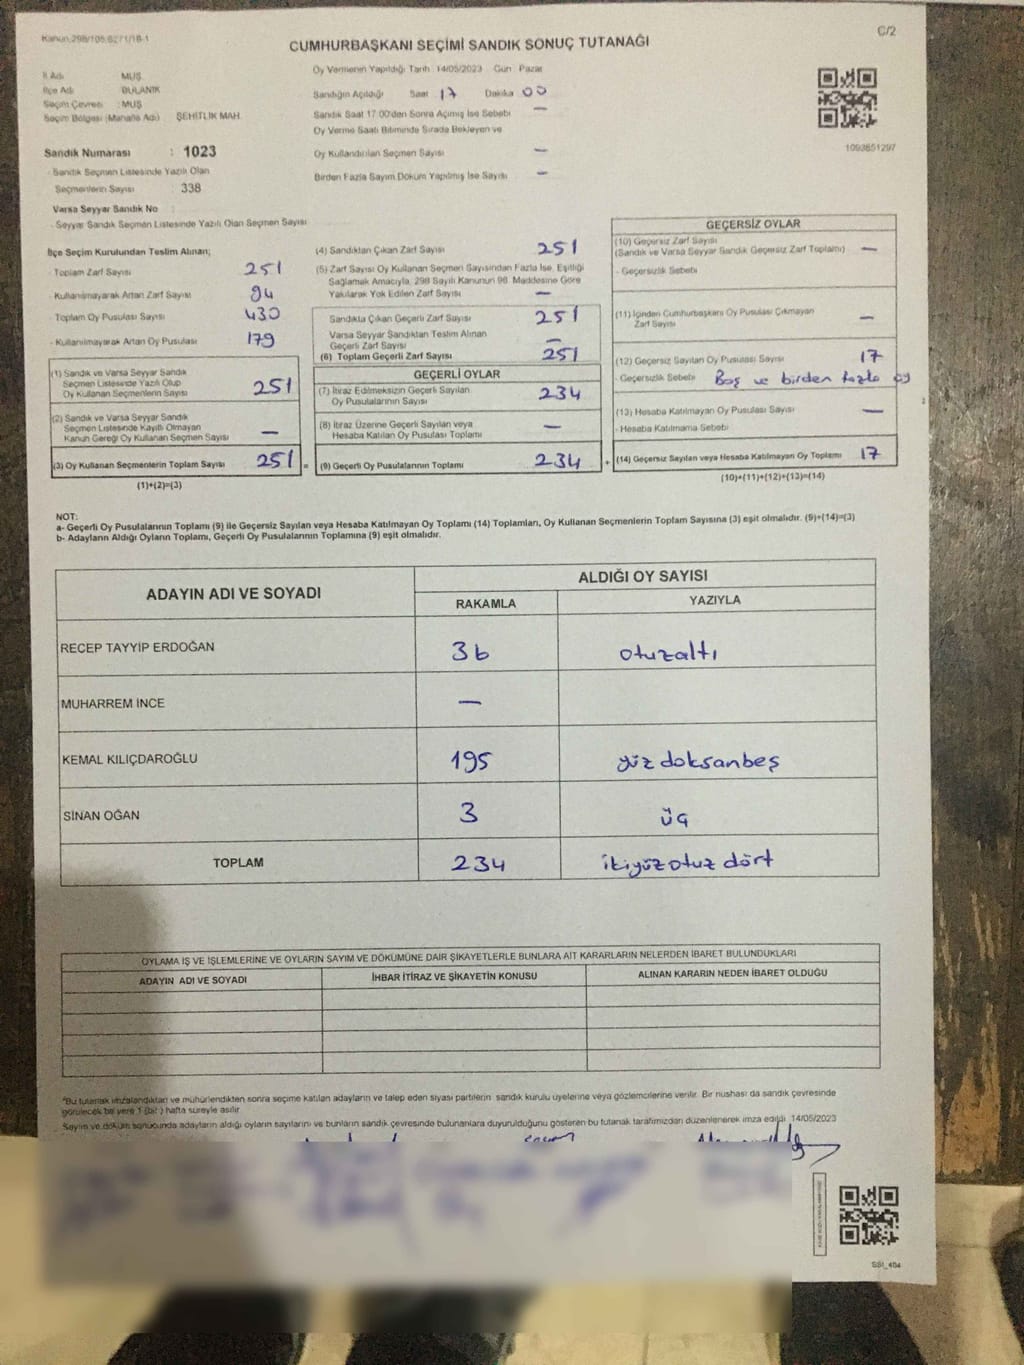 Kanun:298/105,6271/18-1
C/2
CUMHURBAŞKANI SEÇİMİ SANDIK SONUÇ TUTANAĞI
İl Adı : MUŞ
İlçe Adı : BULANIK
Seçim Çevresi : MUŞ
Seçim Bölgesi (Mahalle Adı) : ŞEHİTLİK MAH.
Sandık Numarası : 1023
- Sandık Seçmen Listesinde Yazılı Olan
Seçmenlerin Sayısı : 338
Varsa Seyyar Sandık No :
- Seyyar Sandık Seçmen Listesinde Yazılı Olan Seçmen Sayısı
Oy Vermenin Yapıldığı Tarih :14/05/2023 Gün : Pazar
Sandığın Açıldığı Saat 17 Dakika 00
Sandık Saat 17.00'den Sonra Açılmış İse Sebebi —
Oy Verme Saati Bitiminde Sırada Bekleyen ve
Oy Kullandırılan Seçmen Sayısı —
Birden Fazla Sayım Döküm Yapılmış İse Sayısı —
1093851297
İlçe Seçim Kurulundan Teslim Alınan;
- Toplam Zarf Sayısı 251
- Kullanılmayarak Artan Zarf Sayısı 94
- Toplam Oy Pusulası Sayısı 430
- Kullanılmayarak Artan Oy Pusulası 179
(1) Sandık ve Varsa Seyyar Sandık
Seçmen Listesinde Yazılı Olup
Oy Kullanan Seçmenlerin Sayısı 251
(2) Sandık ve Varsa Seyyar Sandık
Seçmen Listesinde Kayıtlı Olmayan
Kanun Gereği Oy Kullanan Seçmen Sayısı —
(3) Oy Kullanan Seçmenlerin Toplam Sayısı 251 =
(1)+(2)=(3)
(4) Sandıktan Çıkan Zarf Sayısı 251
(5) Zarf Sayısı Oy Kullanan Seçmen Sayısından Fazla İse, Eşitliği
Sağlamak Amacıyla, 298 Sayılı Kanunun 98. Maddesine Göre
Yakılarak Yok Edilen Zarf Sayısı —
Sandıkta Çıkan Geçerli Zarf Sayısı 251
Varsa Seyyar Sandıktan Teslim Alınan
Geçerli Zarf Sayısı —
(6) Toplam Geçerli Zarf Sayısı 251
GEÇERLİ OYLAR
(7) İtiraz Edilmeksizin Geçerli Sayılan
Oy Pusulalarının Sayısı 234
(8) İtiraz Üzerine Geçerli Sayılan veya
Hesaba Katılan Oy Pusulası Toplamı —
(9) Geçerli Oy Pusulalarının Toplamı 234 +
GEÇERSİZ OYLAR
(10) Geçersiz Zarf Sayısı
(Sandık ve Varsa Seyyar Sandık Geçersiz Zarf Toplamı) —
- Geçersizlik Sebebi
(11) İçinden Cumhurbaşkanı Oy Pusulası Çıkmayan
Zarf Sayısı —
(12) Geçersiz Sayılan Oy Pusulası Sayısı 17
- Geçersizlik Sebebi Boş ve birden fazla oy
(13) Hesaba Katılmayan Oy Pusulası Sayısı —
- Hesaba Katılmama Sebebi
(14) Geçersiz Sayılan veya Hesaba Katılmayan Oy Toplamı 17
(10)+(11)+(12)+(13)=(14)
NOT:
a- Geçerli Oy Pusulalarının Toplamı (9) ile Geçersiz Sayılan veya Hesaba Katılmayan Oy Toplamı (14) Toplamları, Oy Kullanan Seçmenlerin Toplam Sayısına (3) eşit olmalıdır. (9)+(14)=(3)
b- Adayların Aldığı Oyların Toplamı, Geçerli Oy Pusulalarının Toplamına (9) eşit olmalıdır.
ADAYIN ADI VE SOYADI
ALDIĞI OY SAYISI
RAKAMLA YAZIYLA
RECEP TAYYİP ERDOĞAN 36 otuzaltı
MUHARREM İNCE —
KEMAL KILIÇDAROĞLU 195 yüz doksanbeş
SİNAN OĞAN 3 üç
TOPLAM 234 ikiyüz otuz dört
OYLAMA İŞ VE İŞLEMLERİNE VE OYLARIN SAYIM VE DÖKÜMÜNE DAİR ŞİKAYETLERLE BUNLARA AİT KARARLARIN NELERDEN İBARET BULUNDUKLARI
ADAYIN ADI VE SOYADI İHBAR İTİRAZ VE ŞİKAYETİN KONUSU ALINAN KARARIN NEDEN İBARET OLDUĞU
*Bu tutanak imzalandıktan ve mühürlendikten sonra seçime katılan adayların ve talep eden siyasi partilerin sandık kurulu üyelerine veya gözlemcilerine verilir. Bir nüshası da sandık çevresinde
görülecek bir yere 1 (bir) hafta süreyle asılır.
Sayım ve döküm sonucunda adayların aldığı oyların sayılarını ve bunların sandık çevresinde bulunanlara duyurulduğunu gösteren bu tutanak tarafımızdan düzenlenerek imza edildi. 14/05/2023
SSI_404